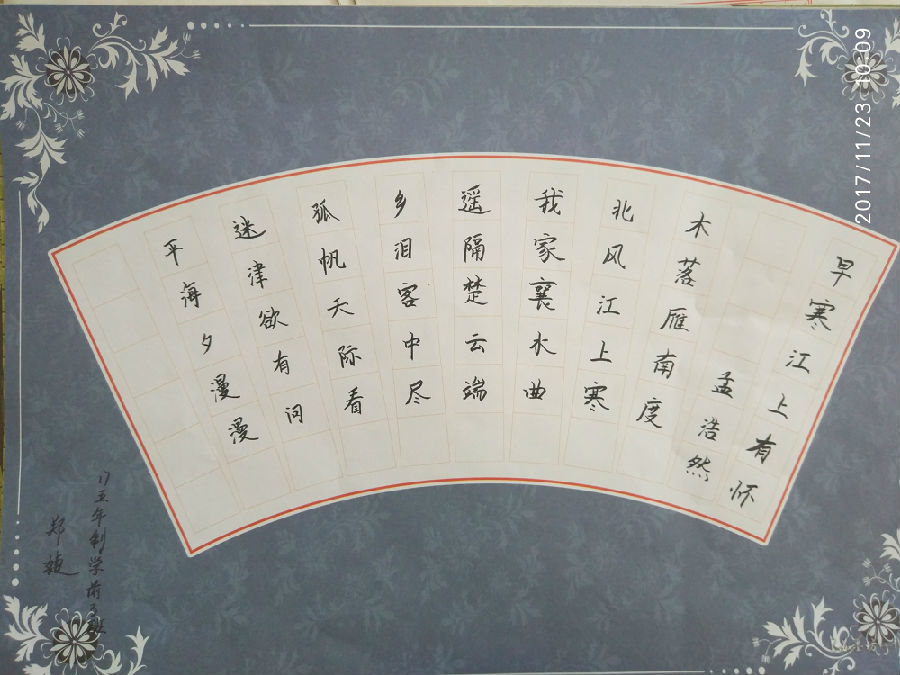 早寒江上有怀
孟浩然
木落雁南度
北风江上寒
我家襄水曲
遥隔楚云端
乡泪客中尽
孤帆天际看
迷津欲有问
平海夕漫漫
17五年制学前3班
郑
2017/11/23 10:09